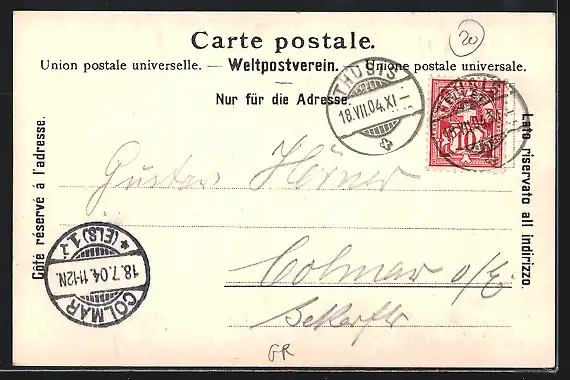 20
Carte postale.
Union postale universelle. — Weltpostverein. — Unione postale universale.
Nur für die Adresse.
THUSIS
18.VII.04.XI-
HELVETIA
10
Côté réservé à l'adresse.
Lato riservato all indirizzo.
Gustav Hörner
Colmar o/E.
COLMAR
18.7.04.11-12N.
* (ELS) 1. *
GR